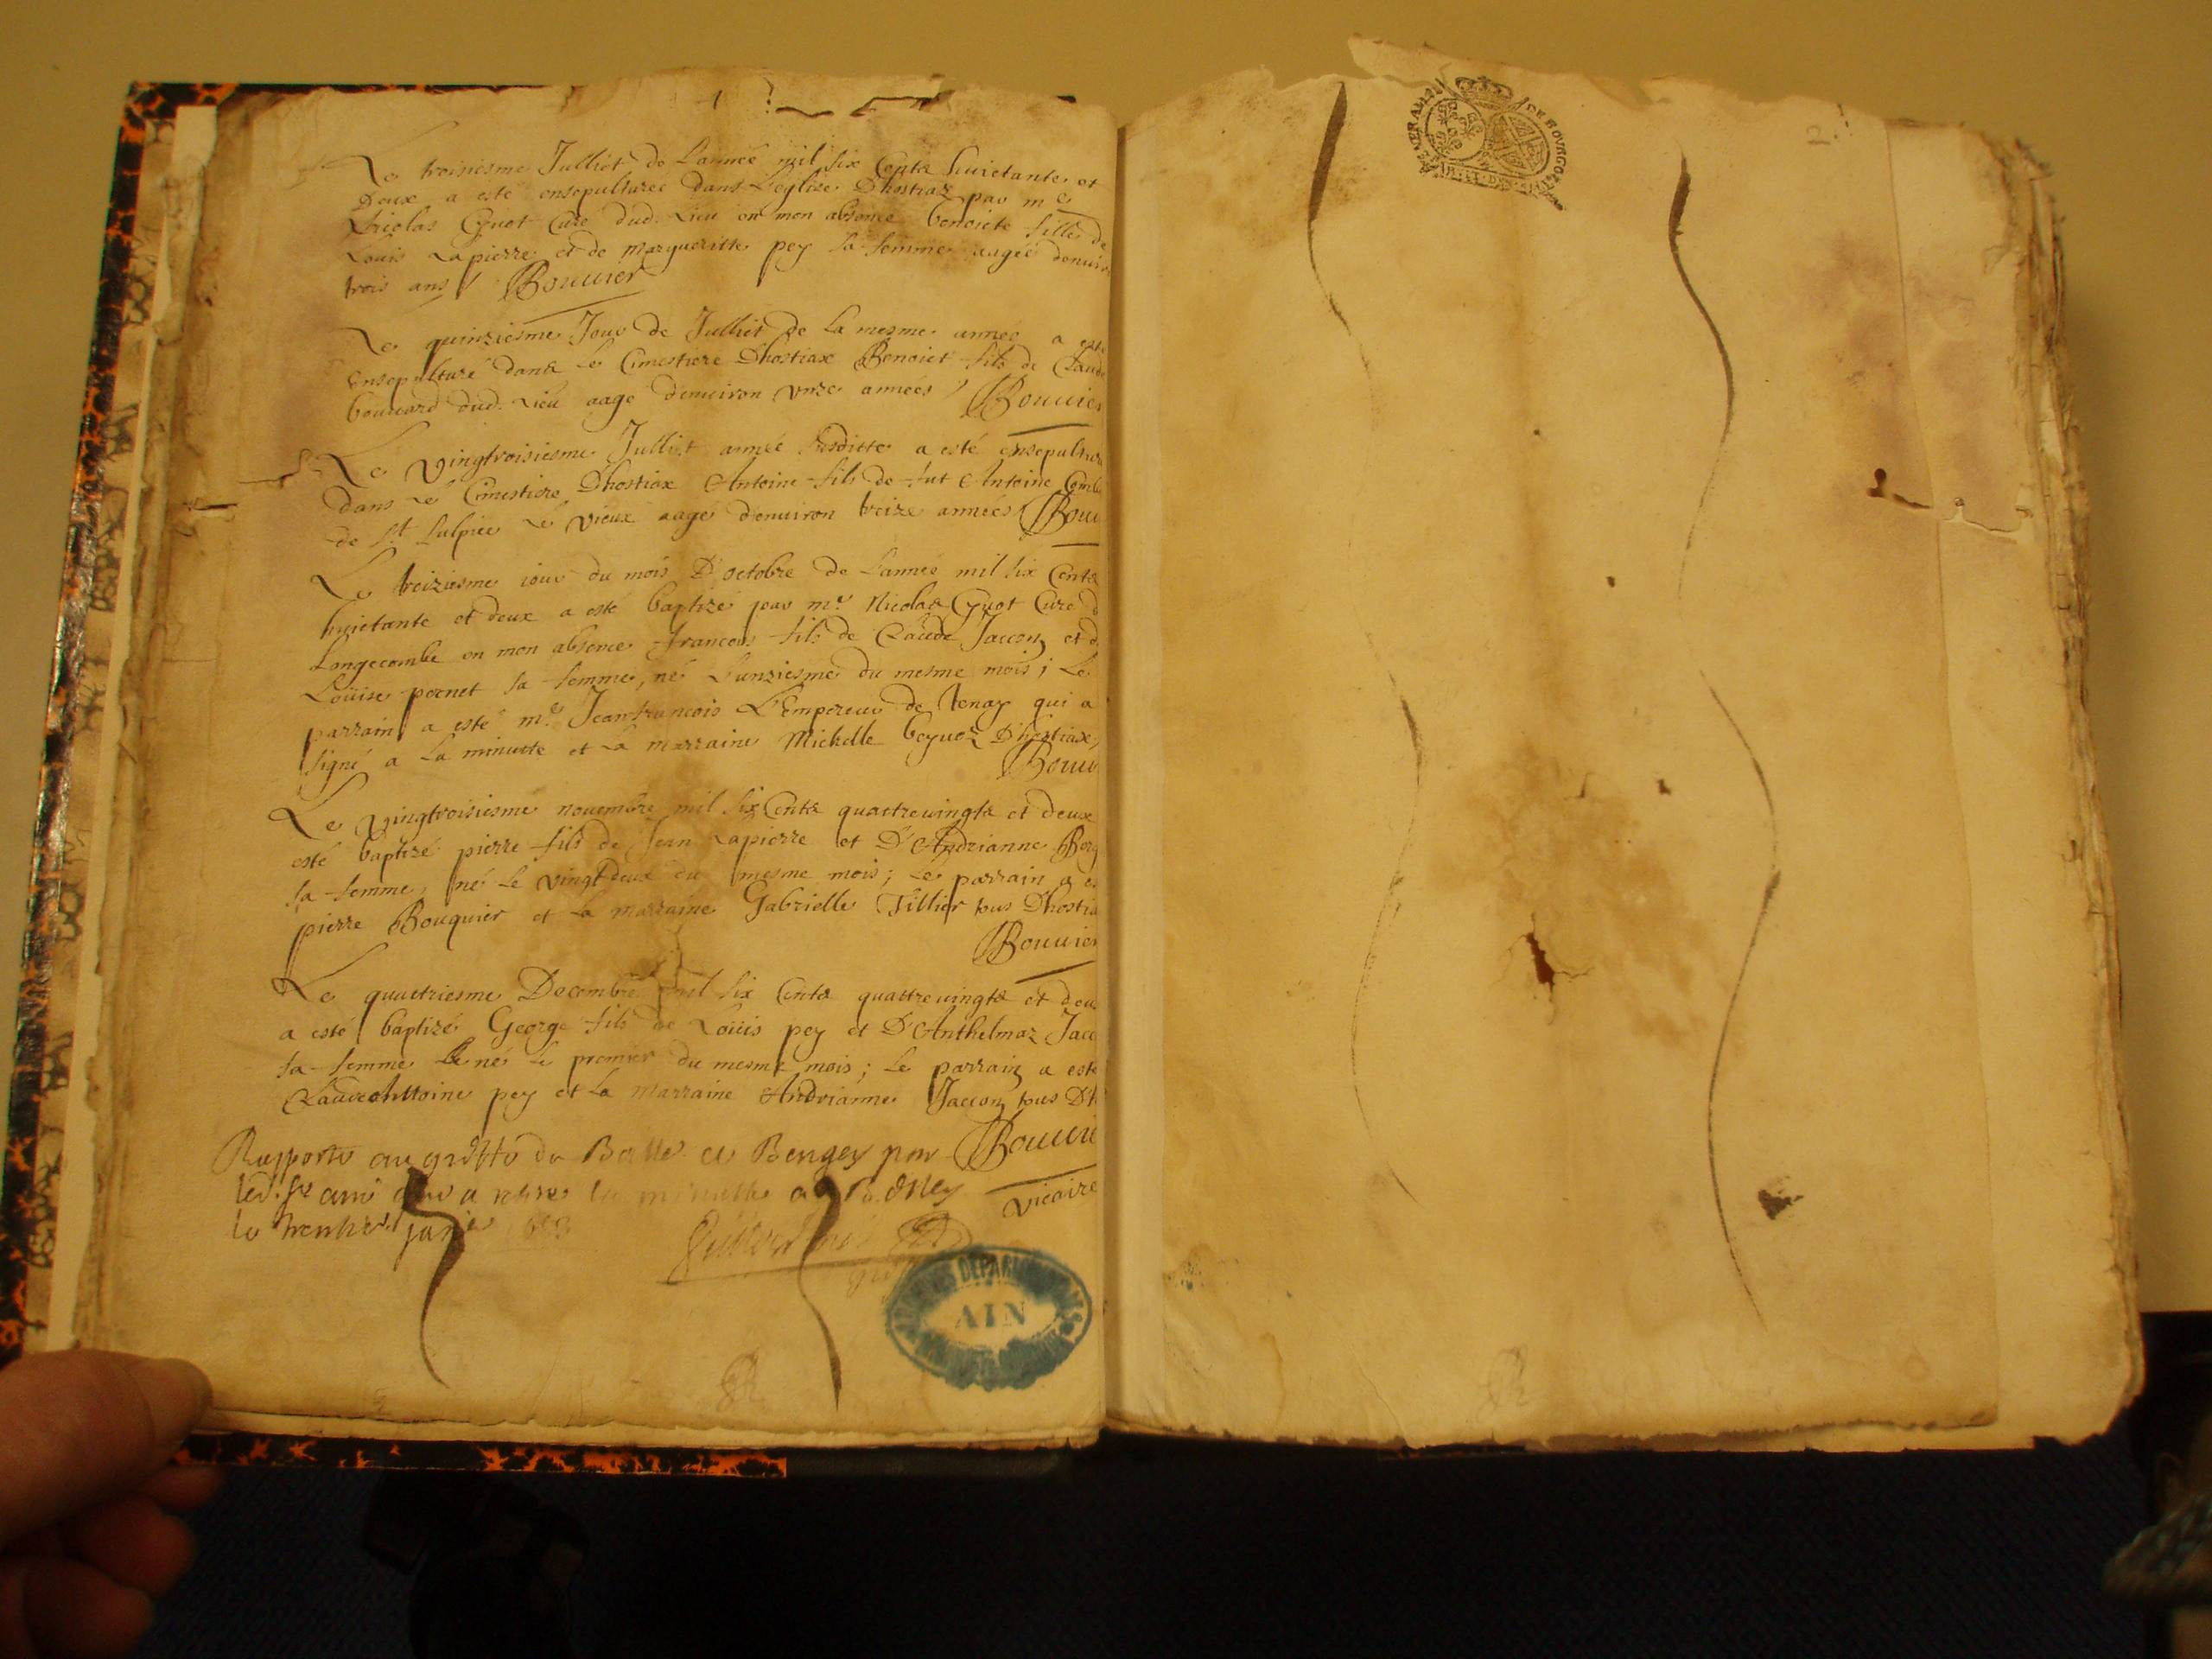 Le troisiesme Julliet de Lannée mil six Cents huictante et
Deux a esté ensepulturée dans Leglise Dhostiaz par me
Nicolas Guot Curé dud. Lieu en mon absence benoiete fille de
Louis Lapierre et de margueritte pey sa femme aagée denuir
trois ans / Bouuier
Le quinziesme Jour de Julliet de la mesme année a esté
Ensepulturé dans Le Cimestiere Dhostiaz Benoict fils de Claude
bouuard dud. Lieu aagé denuiron Unze années / Bouuier
Le Vingtroisiesme Julliet année susditte a esté ensepultur
dans Le Cimestiere Dhostiaz Antoine fils de fut Antoine
de St. Sulpice Le Vieux aagé denuiron treize années Bouu
Le treiziesme iour du mois D'octobre de Lannée mil six Cents
huictante et deux a esté baptizé par me. Nicolas Guot Curé d
Longecombe en mon absence francois fils de Claude Jaccon et d
Loüise pornet sa femme, né L'unziesme du mesme mois; Le
parrain a esté me. Jeanfrancois L'Empereur de Tenay qui a
signé a La minutte et La marraine Michelle beguoz Dhostiaz
Bouu
Le Vingtroisiesme nouembre mil six Cents quattreuingts et deux
esté baptizé pierre fils de Jean Lapierre et D'Andrianne Borg
sa femme, né Le Vingtdeux du mesme mois; Le parrain a es
pierre Bouquier et La marraine Gabrielle Tillier tous Dhostia
Bouuier
Le quattriesme Decembre mil six Cents quattreuingts et deu
a esté baptizé George fils de Loüis pey et D'Anthelmaz Jacc
sa femme né Le premier du mesme mois; Le parrain a esté
Claude Antoine pey et La marraine Andrianne Jaccon tous Dh
Bouuie
Vicaire
Rapporté au greffe du Balle de Beugey par
led. sr curé qui a retiré la minutte a Belley
le trente janvier 1683
2
GENERALITE DE BOURGOGNE
ARCHIVES DEPARTEMENTALES
AIN